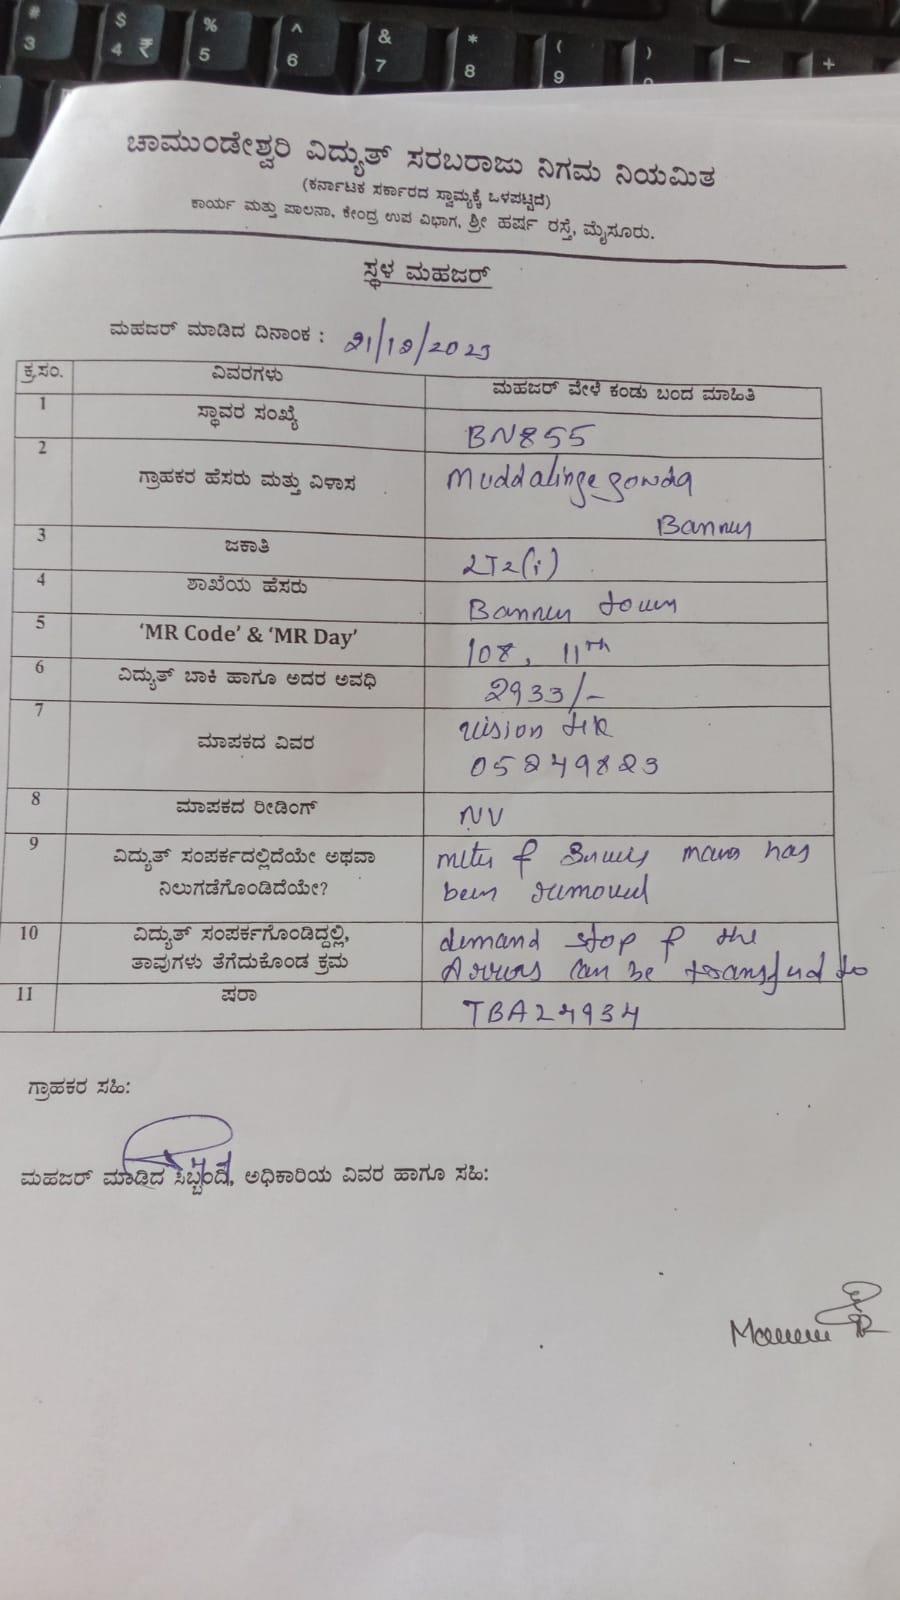 # 3
$ 4 ₹
% 5
^ 6
& 7
* 8
( 9
)
—
+
ಚಾಮುಂಡೇಶ್ವರಿ ವಿದ್ಯುತ್ ಸರಬರಾಜು ನಿಗಮ ನಿಯಮಿತ
(ಕರ್ನಾಟಕ ಸರ್ಕಾರದ ಸ್ವಾಮ್ಯಕ್ಕೆ ಒಳಪಟ್ಟಿದೆ)
ಕಾರ್ಯ ಮತ್ತು ಪಾಲನಾ, ಕೇಂದ್ರ ಉಪ ವಿಭಾಗ, ಶ್ರೀ ಹರ್ಷ ರಸ್ತೆ, ಮೈಸೂರು.
ಸ್ಥಳ ಮಹಜರ್
ಮಹಜರ್ ಮಾಡಿದ ದಿನಾಂಕ : 21/12/2025
ಕ್ರ.ಸಂ. ವಿವರಗಳು ಮಹಜರ್ ವೇಳೆ ಕಂಡು ಬಂದ ಮಾಹಿತಿ
1 ಸ್ಥಾವರ ಸಂಖ್ಯೆ BN855
2 ಗ್ರಾಹಕರ ಹೆಸರು ಮತ್ತು ವಿಳಾಸ Muddalingegowda
Bannur
3 ಜಕಾತಿ LT2(i)
4 ಶಾಖೆಯ ಹೆಸರು Bannur town
5 'MR Code' & 'MR Day' 108, 11th
6 ವಿದ್ಯುತ್ ಬಾಕಿ ಹಾಗೂ ಅದರ ಅವಧಿ 2933/-
7 ಮಾಪಕದ ವಿವರ Vision
05249823
8 ಮಾಪಕದ ರೀಡಿಂಗ್ NV
9 ವಿದ್ಯುತ್ ಸಂಪರ್ಕದಲ್ಲಿದೆಯೇ ಅಥವಾ meter & has
ನಿಲುಗಡೆಗೊಂಡಿದೆಯೇ? been removed
10 ವಿದ್ಯುತ್ ಸಂಪರ್ಕಗೊಂಡಿದ್ದಲ್ಲಿ, demand stop & the
ತಾವುಗಳು ತೆಗೆದುಕೊಂಡ ಕ್ರಮ Arrears can be transfered to
11 ಷರಾ TBA24934
ಗ್ರಾಹಕರ ಸಹಿ:
ಮಹಜರ್ ಮಾಡಿದ ಸಿಬ್ಬಂದಿ, ಅಧಿಕಾರಿಯ ವಿವರ ಹಾಗೂ ಸಹಿ: